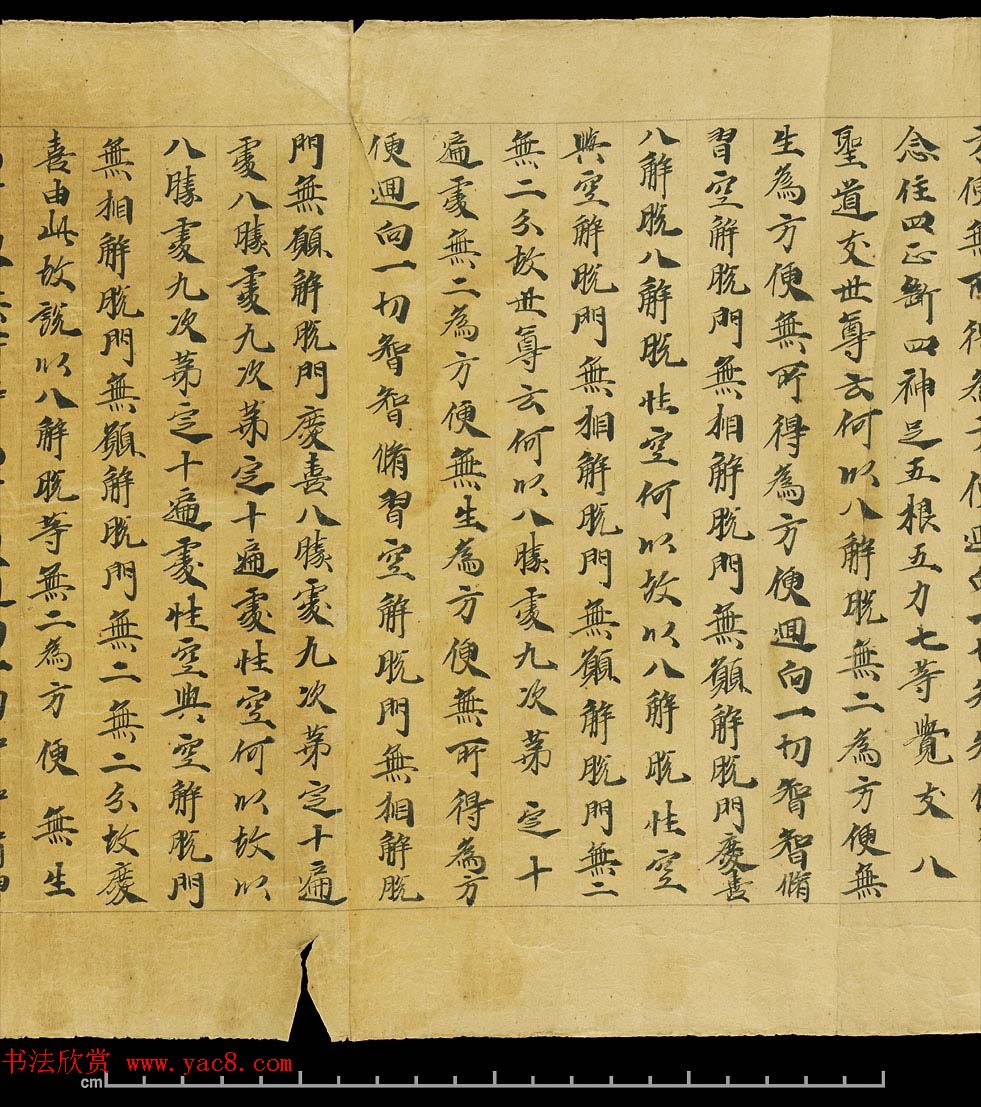 便無所得為方便迴向一
念住四正斷四神足五根五力七等覺支八
聖道支世尊云何以八解脫無二為方便無
生為方便無所得為方便迴向一切智智脩
習空解脫門無相解脫門無願解脫門慶喜
八解脫八解脫性空何以故以八解脫性空
與空解脫門無相解脫門無願解脫門無二
無二分故世尊云何以八勝處九次第定十
遍處無二為方便無生為方便無所得為方
便迴向一切智智脩習空解脫門無相解脫
門無願解脫門慶喜八勝處九次第定十遍
處八勝處九次第定十遍處性空何以故以
八勝處九次第定十遍處性空與空解脫門
無相解脫門無願解脫門無二無二分故慶
喜由此故說以八解脫等無二為方便無生
书法欣赏 www.yac8.com
cm